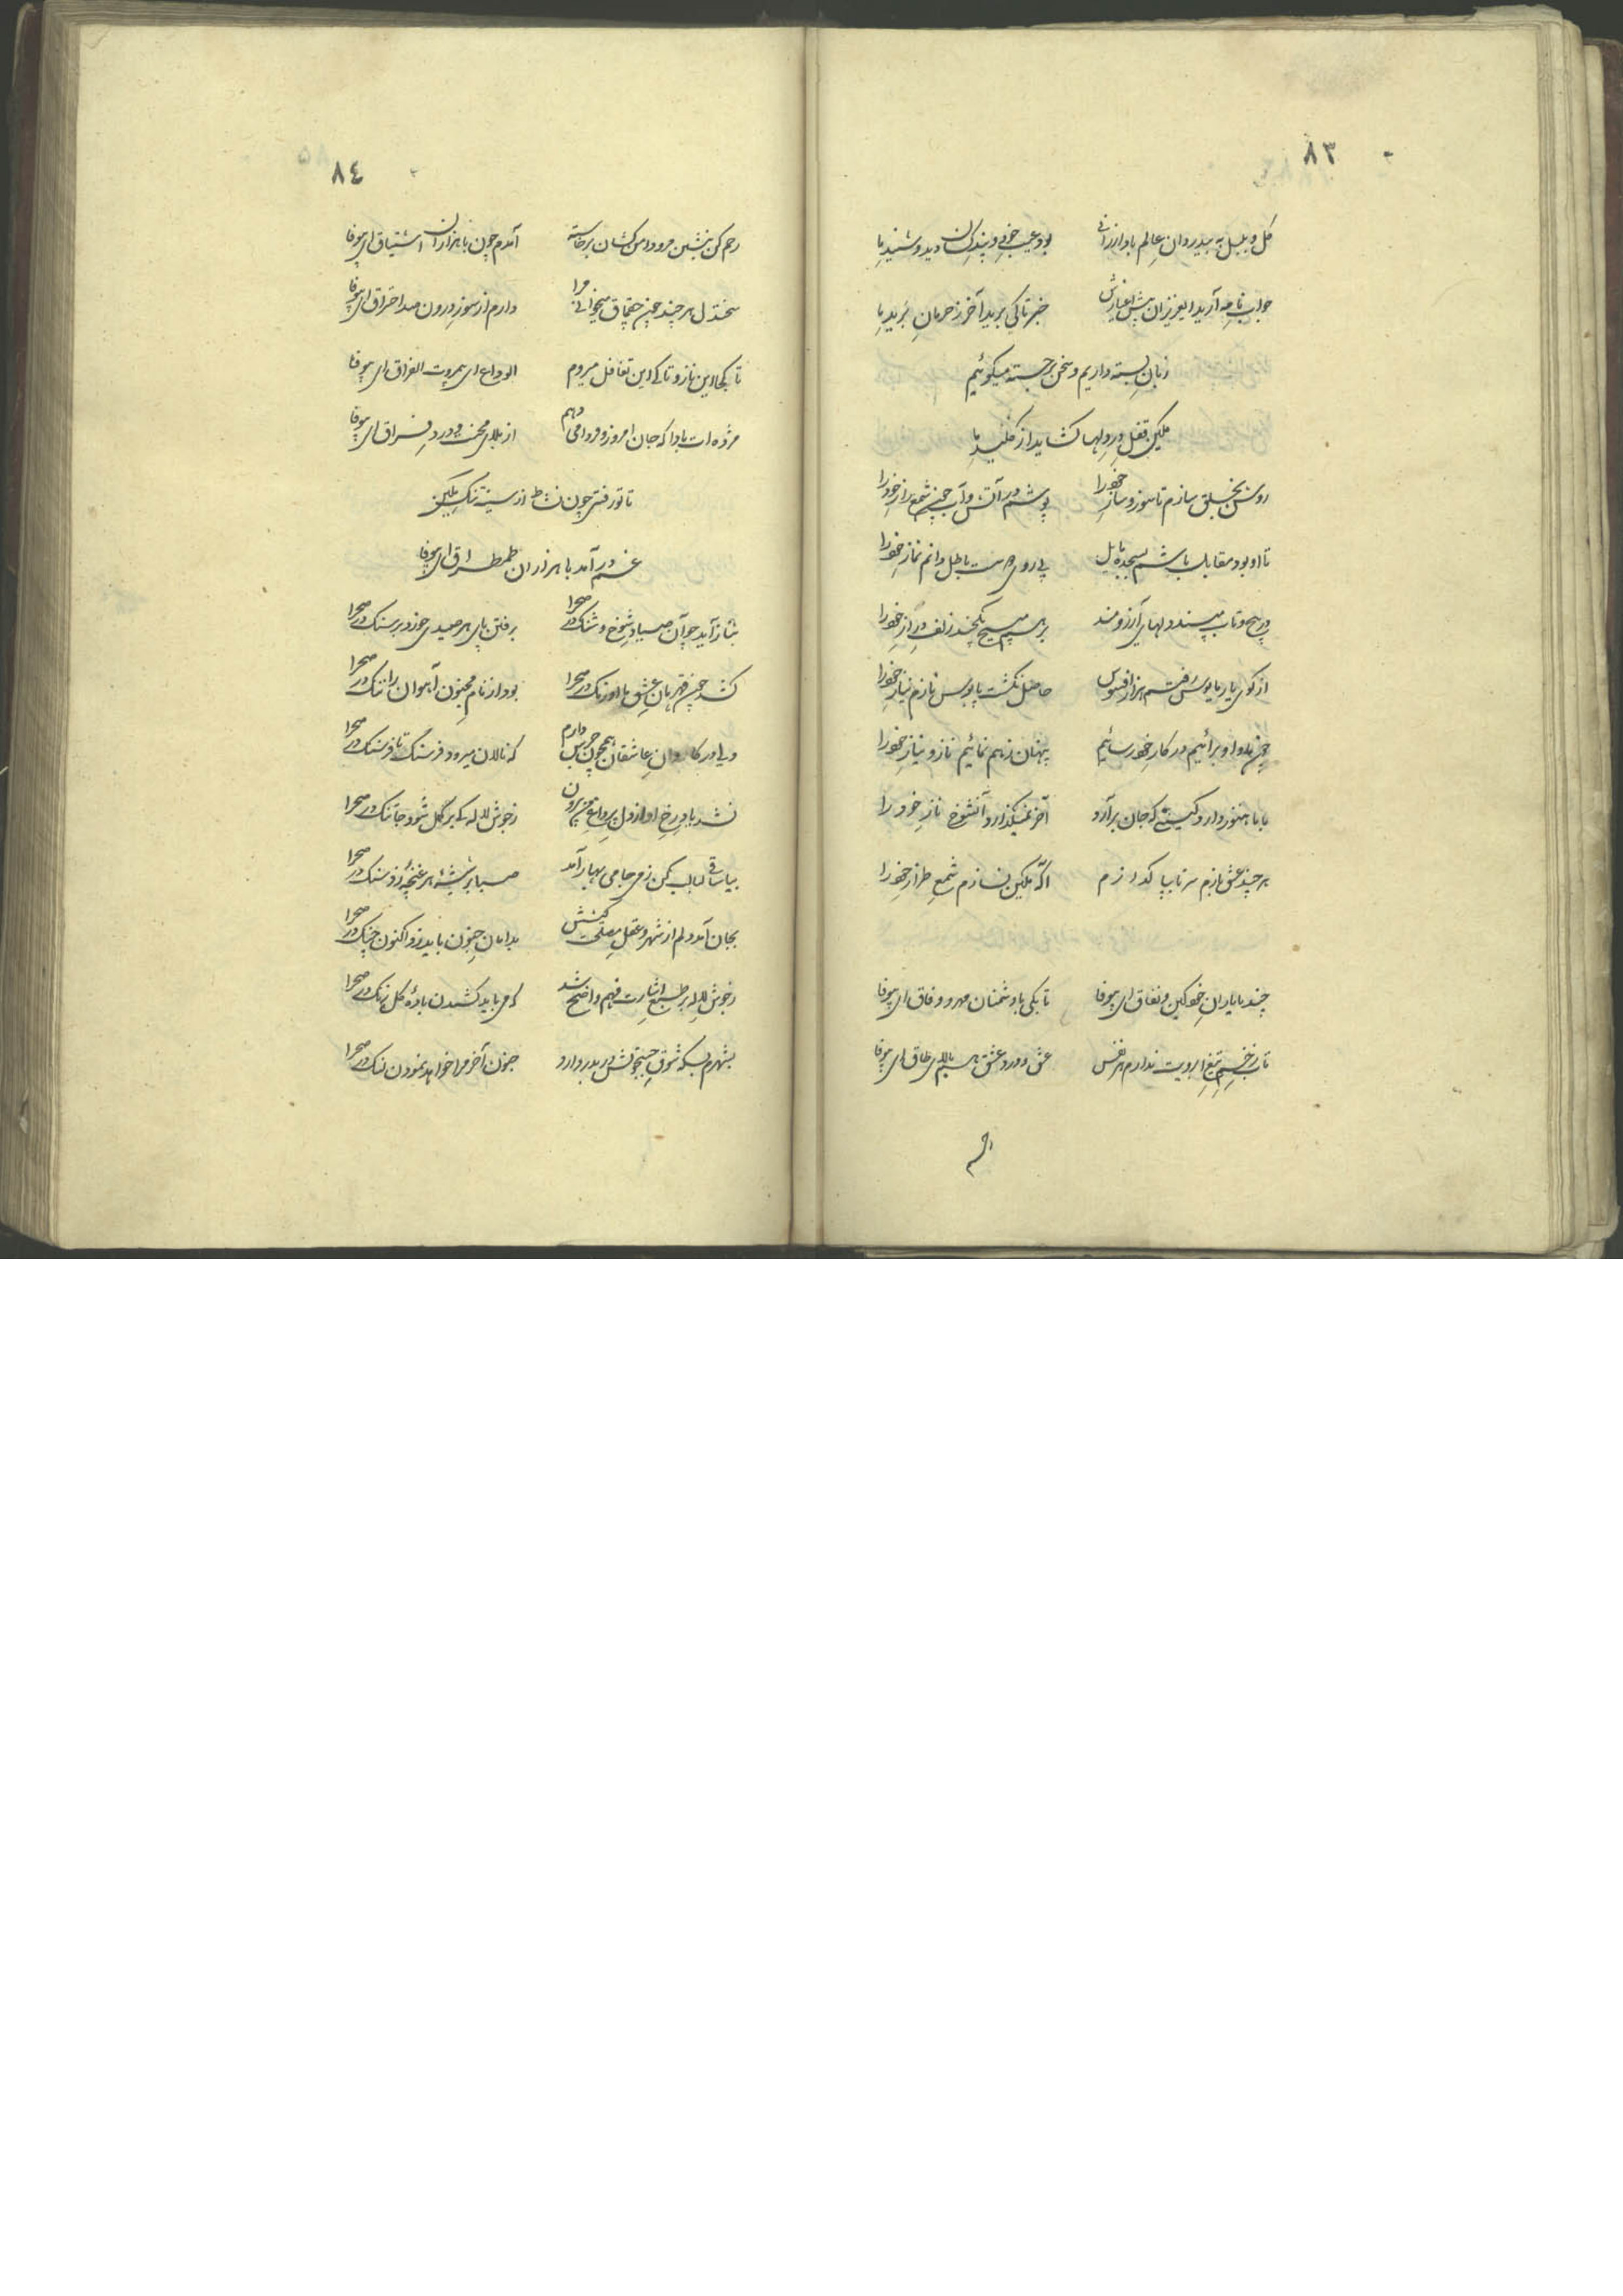 ۸۳
گل و بلبل به بیدردان عالم باد ارزانی
بود عیب خوبی دید و شنید ما
جواب نامه آرید ای عزیزان پیش
خبر تا کی برید آخر ز حرمان برید ما
زبان بسته داریم و سخن برجسته میگوئیم
تمکین قفل در دلها گشاید از کلید ما
روشن بخلق سازم تا سوز و ساز خود را
پوشم در آتش و آب چون شمع راز خود را
تا او بود مقابل باشم بسجده مایل
بی روی دوست باطل دانم نماز خود را
در پیچ و تاب میسند دلهای آرزومند
برهم مپیچ یکچند زلف دراز خود را
از کوی یار مایوس رفتم هزار افسوس
حاصل نگشت پابوس نازم نیاز خود را
پنهان ز هم نمائیم ناز و نیاز خود را
با ما هنوز دارد کینی که جان برآرد
آخر نمیگذارد آنشوخ ناز خود را
هر چند عشق بازم سر تا بپا گدازم
آگه تمکین نسازم شمع طراز خود را
چند با یاران خود کین و نفاق ای بیوفا
تا بکی با دشمنان مهر و وفاق ای بیوفا
تاب زخم تیغ ابرویت ندارم هر نفس
رحم
۸٤
رحم کن بنشین مرو دامن کشان برخاسته
آمدم چون با هزاران اشتیاق ای بیوفا
سنگدل هر چند چون چقماق میخوانی مرا
دارم از سوز درون صد احتراق ای بیوفا
تا کجا این ناز و تا کی این تغافل میروم
الوداع ای بیمروت الفراق ای بیوفا
مژده ات بادا که جان امروز و فردا می دهم
از بلای محنت و درد فراق ای بیوفا
تا تو رفتی چون نشاط از سینه تنگ تمکین
غم درآمد با هزاران طمطراق ای بیوفا
بتاز آید چو آن صیاد شوخ و شنگ در صحرا
برفتن پای هر صیدی خورد بر سنگ در صحرا
کشد چون قهرمان عشق ما اورنگ در صحرا
بود از نام مجنون آهوان را ننگ در صحرا
دلی در کاروان عاشقان همچون جرس دارم
که نالان میرود فرسنگ تا فرسنگ در صحرا
نشد یاد رخ او از دل پر داغ من بیرون
ز جوش لاله کی بر گل شود جا تنگ در صحرا
بیا ساقی لبالب کن ز می جامی بهار آمد
صبا بر شیشه هر غنچه زد سنگ در صحرا
بجان آمد دلم از شهر و عقل مصلحت کیشش
بدامان جنون باید زد اکنون چنگ در صحرا
ز جوش لاله بر طبع اشارت فهم واضح شد
که می باید کشیدن باده گلرنگ در صحرا
بشهرم بسکه شوق جستجویش در بدر دارد
جنون آخر مرا خواهد نمودن لنگ در صحرا